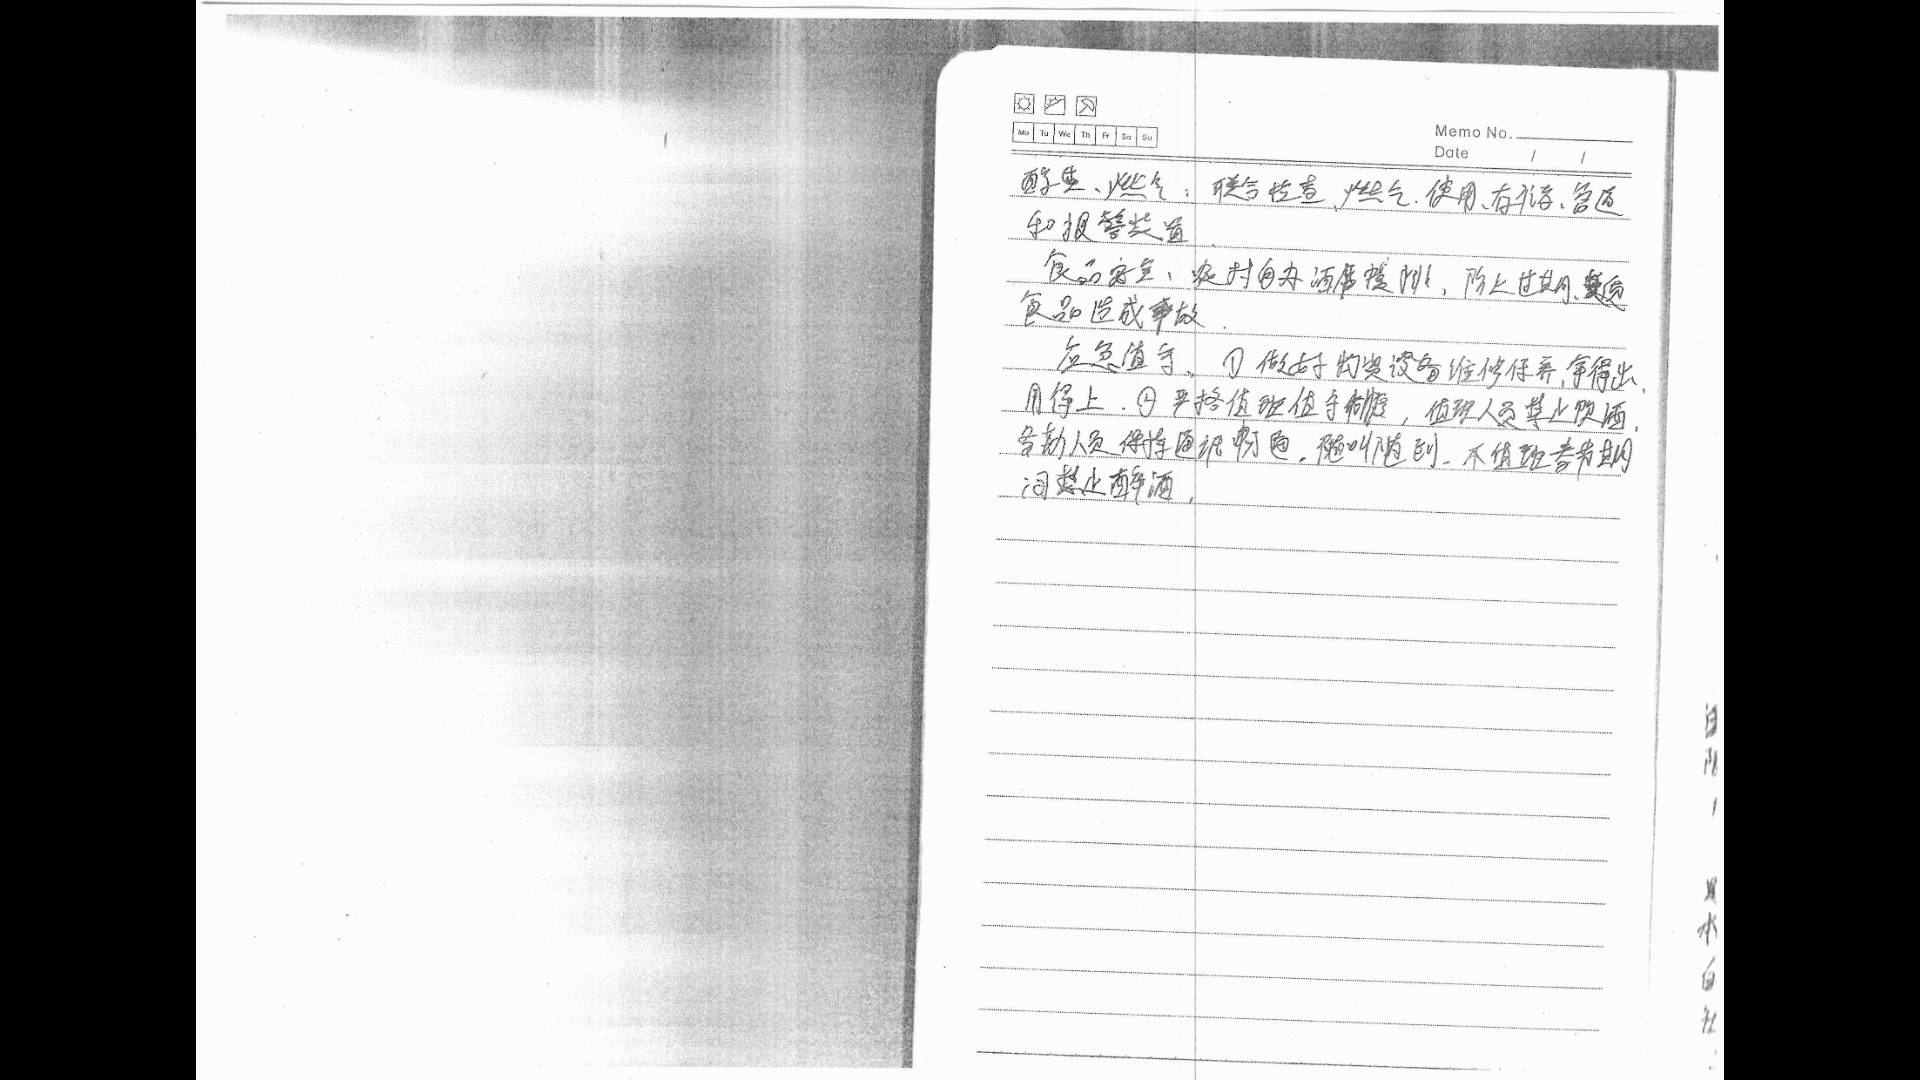 Mo Tu We Th Fr Sa Su
Memo No.
Date / /
醇基、燃气：联合检查，燃气使用、存储、管道
和报警装置.
食品安全、农村自办酒席摸排，防止过期、变质
食品造成事故.
应急值守、① 做好物资设备维修保养,拿得出、
用得上.② 严格值班值守制度，值班人员禁止饮酒.
备勤人员保持通讯畅通.随叫随到.不值班春节期
间禁止醉酒.